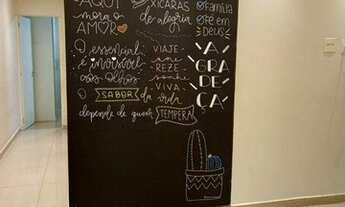 AQUI
mora o
AMOR
XÍCARAS
de alegria
Família
Fé em
DEUS
O essencial
é invisível
aos olhos
VIAJE
AME
REZE
SONHE
VIVA
A
GRA
DE
ÇA
O SABOR da vida
depende de quem
TEMPERA